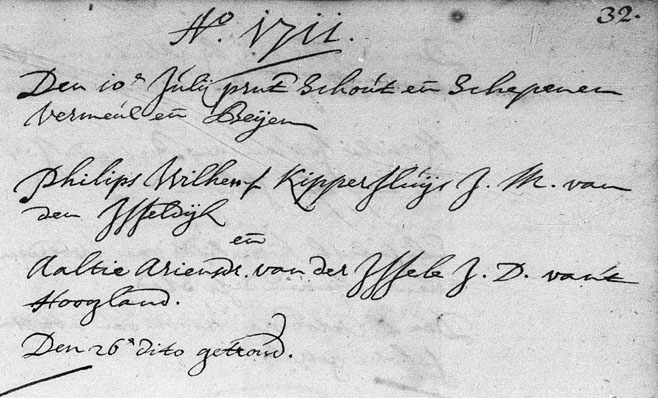 32.
Ao. 1711.
Den 10e Julij prnt Schout en Schepenen
Vermeul en Breijen
Philips Wilhems Kippersluijs J. M. van
den Isseldijk
en
Aaltie Ariensdr. van der Issele J. D. van't
Hoogland.
Den 26e dito getroud.